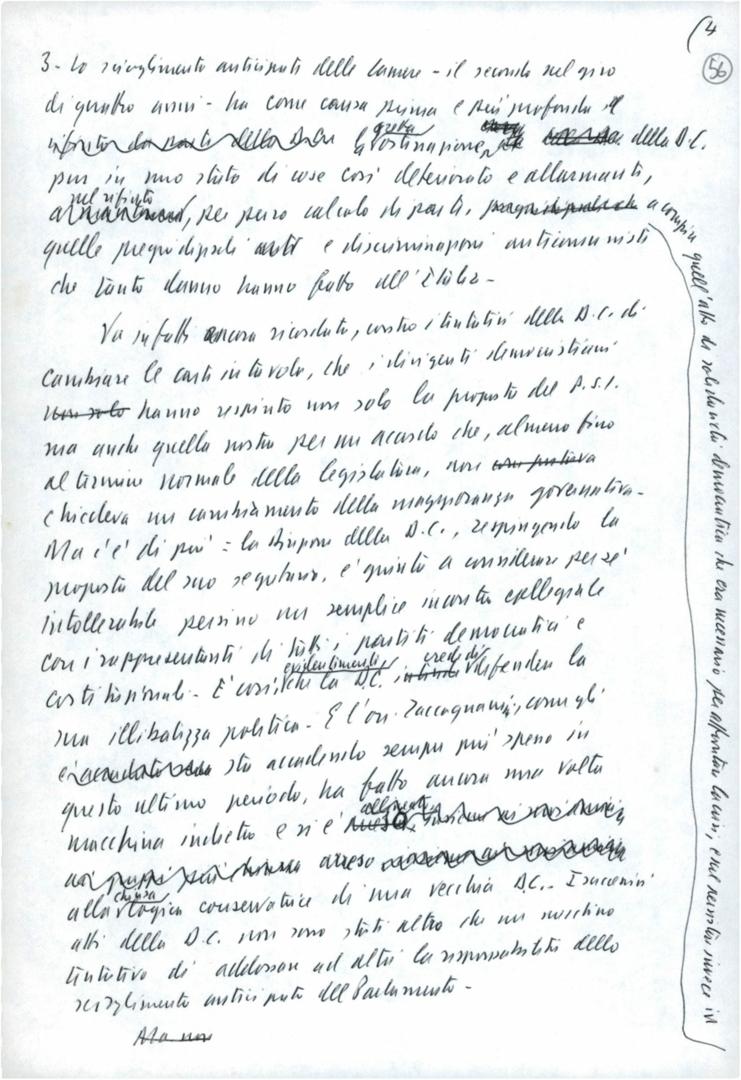 (4
56
3 - Lo scioglimento anticipato delle Camere - il secondo nel giro
di quattro anni - ha come causa prima e più profonda il
rifiuto da parte della D.C. la gretta ostinazione della D.C.
pur in uno stato di cose così deteriorato e allarmante,
nel rifiuto, per puro calcolo di parte, a compiere
quelle pregiudiziali e discriminazioni anticomuniste
che tanto danno hanno fatto all'Italia -
Va infatti ancora ricordato, contro i tentativi della D.C. di
cambiare le carte in tavola, che i dirigenti democristiani
non solo hanno respinto non solo la proposta del P.S.I.
ma anche quella nostra per un accordo che, almeno fino
al termine normale della legislatura, non comportava
chiedeva un cambiamento della maggioranza governativa -
Ma c'è di più: la Direzione della D.C., respingendo la
proposta del suo segretario, è giunta a considerare per sé
intollerabile persino un semplice incontro collegiale
con i rappresentanti di tutti i partiti democratici e
costituzionali - È così che la D.C. evidentemente crede di difendere la
sua illibatezza politica - E l'on. Zaccagnini, come gli
è accaduto sta accadendo sempre più spesso in
questo ultimo periodo, ha fatto ancora una volta
macchina indietro e si è allineato
arreso
alla chiusa logica conservatrice di una vecchia D.C. - I successivi
atti della D.C. non sono stati altro che un meschino
tentativo di addossare ad altri la responsabilità dello
scioglimento anticipato del Parlamento -
Ma non
quell'atto di solidarietà democratica che era necessario per affrontare la crisi, e nel resuscitare invece in